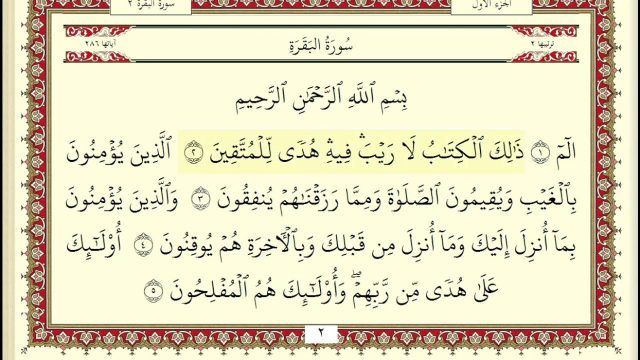 الجزء الأول
سورة البقرة ٢
ترتيبها ٢
سُورَةُ البَقَرَةِ
آياتها ٢٨٦
بِسْمِ ٱللَّهِ ٱلرَّحْمَٰنِ ٱلرَّحِيمِ
الٓمٓ ١ ذَٰلِكَ ٱلْكِتَٰبُ لَا رَيْبَ ۛ فِيهِ ۛ هُدًى لِّلْمُتَّقِينَ ٢ ٱلَّذِينَ يُؤْمِنُونَ
بِٱلْغَيْبِ وَيُقِيمُونَ ٱلصَّلَوٰةَ وَمِمَّا رَزَقْنَٰهُمْ يُنفِقُونَ ٣ وَٱلَّذِينَ يُؤْمِنُونَ
بِمَآ أُنزِلَ إِلَيْكَ وَمَآ أُنزِلَ مِن قَبْلِكَ وَبِٱلْءَاخِرَةِ هُمْ يُوقِنُونَ ٤ أُو۟لَٰٓئِكَ
عَلَىٰ هُدًى مِّن رَّبِّهِمْ ۖ وَأُو۟لَٰٓئِكَ هُمُ ٱلْمُفْلِحُونَ ٥
٢